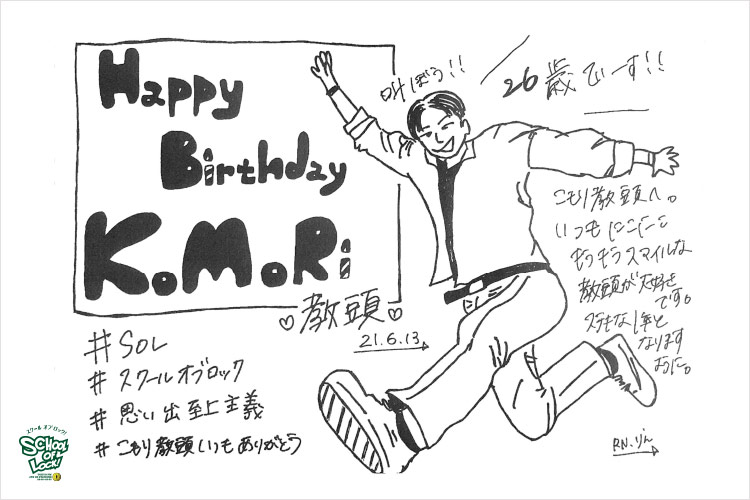 Happy
Birthday
KoMoRi
♡教頭♡
21.6.13
叫ぼう!!
26歳でぃーす!!
こもり教頭へ。
いつもにこにこ
キラキラスマイルな
教頭が大好き
です。
ステキな1年と
なります
ように。
#SOL
#スクールオブロック
#思い出至上主義
#こもり教頭いつもありがとう
RN.りん
スクール オブ ロック!
SCHOOL
OF
LOCK!